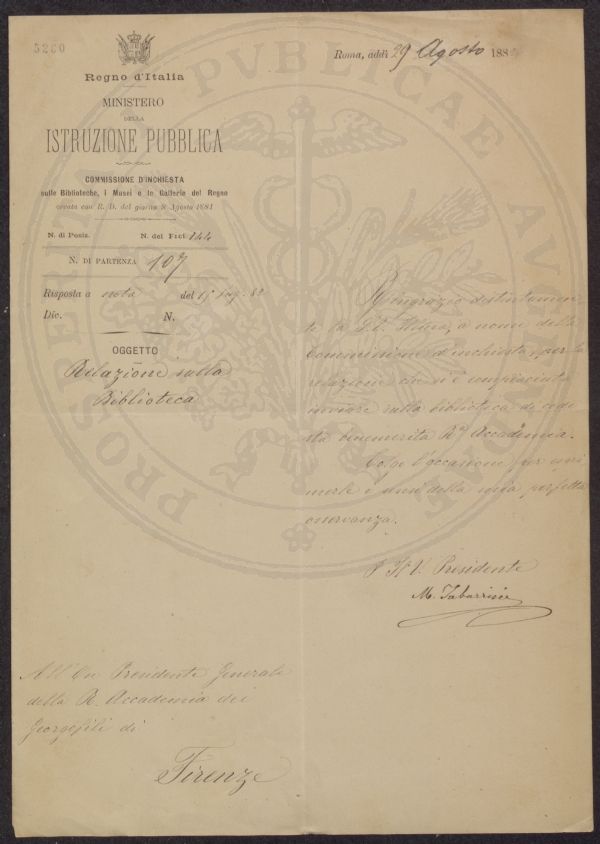 5260
Regno d'Italia
MINISTERO
DELLA
ISTRUZIONE PUBBLICA
COMMISSIONE D'INCHIESTA
sulle Biblioteche, i Musei e le Gallerie del Regno
creata con R. D. del giorno 8 Agosto 1881
N. di Posiz. N. del Prot. 144
N. DI PARTENZA 107
Risposta a nota del 15 82
Dic. N.
OGGETTO
Relazione sulla
Biblioteca
Roma, addì 29 Agosto 188
Ringrazio distintamen
te la S. V. Illma, a nome della
Commissione d'inchiesta, per la
relazione che si è compiaciuta
inviare sulla biblioteca di code
sta benemerita R.ª Accademia.
Colgo l'occasione per espri
merle i sensi della mia perfetta
osservanza.
Il V. Presidente
M. Tabarrini
All'On Presidente Generale
della R. Accademia dei
Georgofili di
Firenze
PROSPERITATI PVBLICAE AVGENDAE